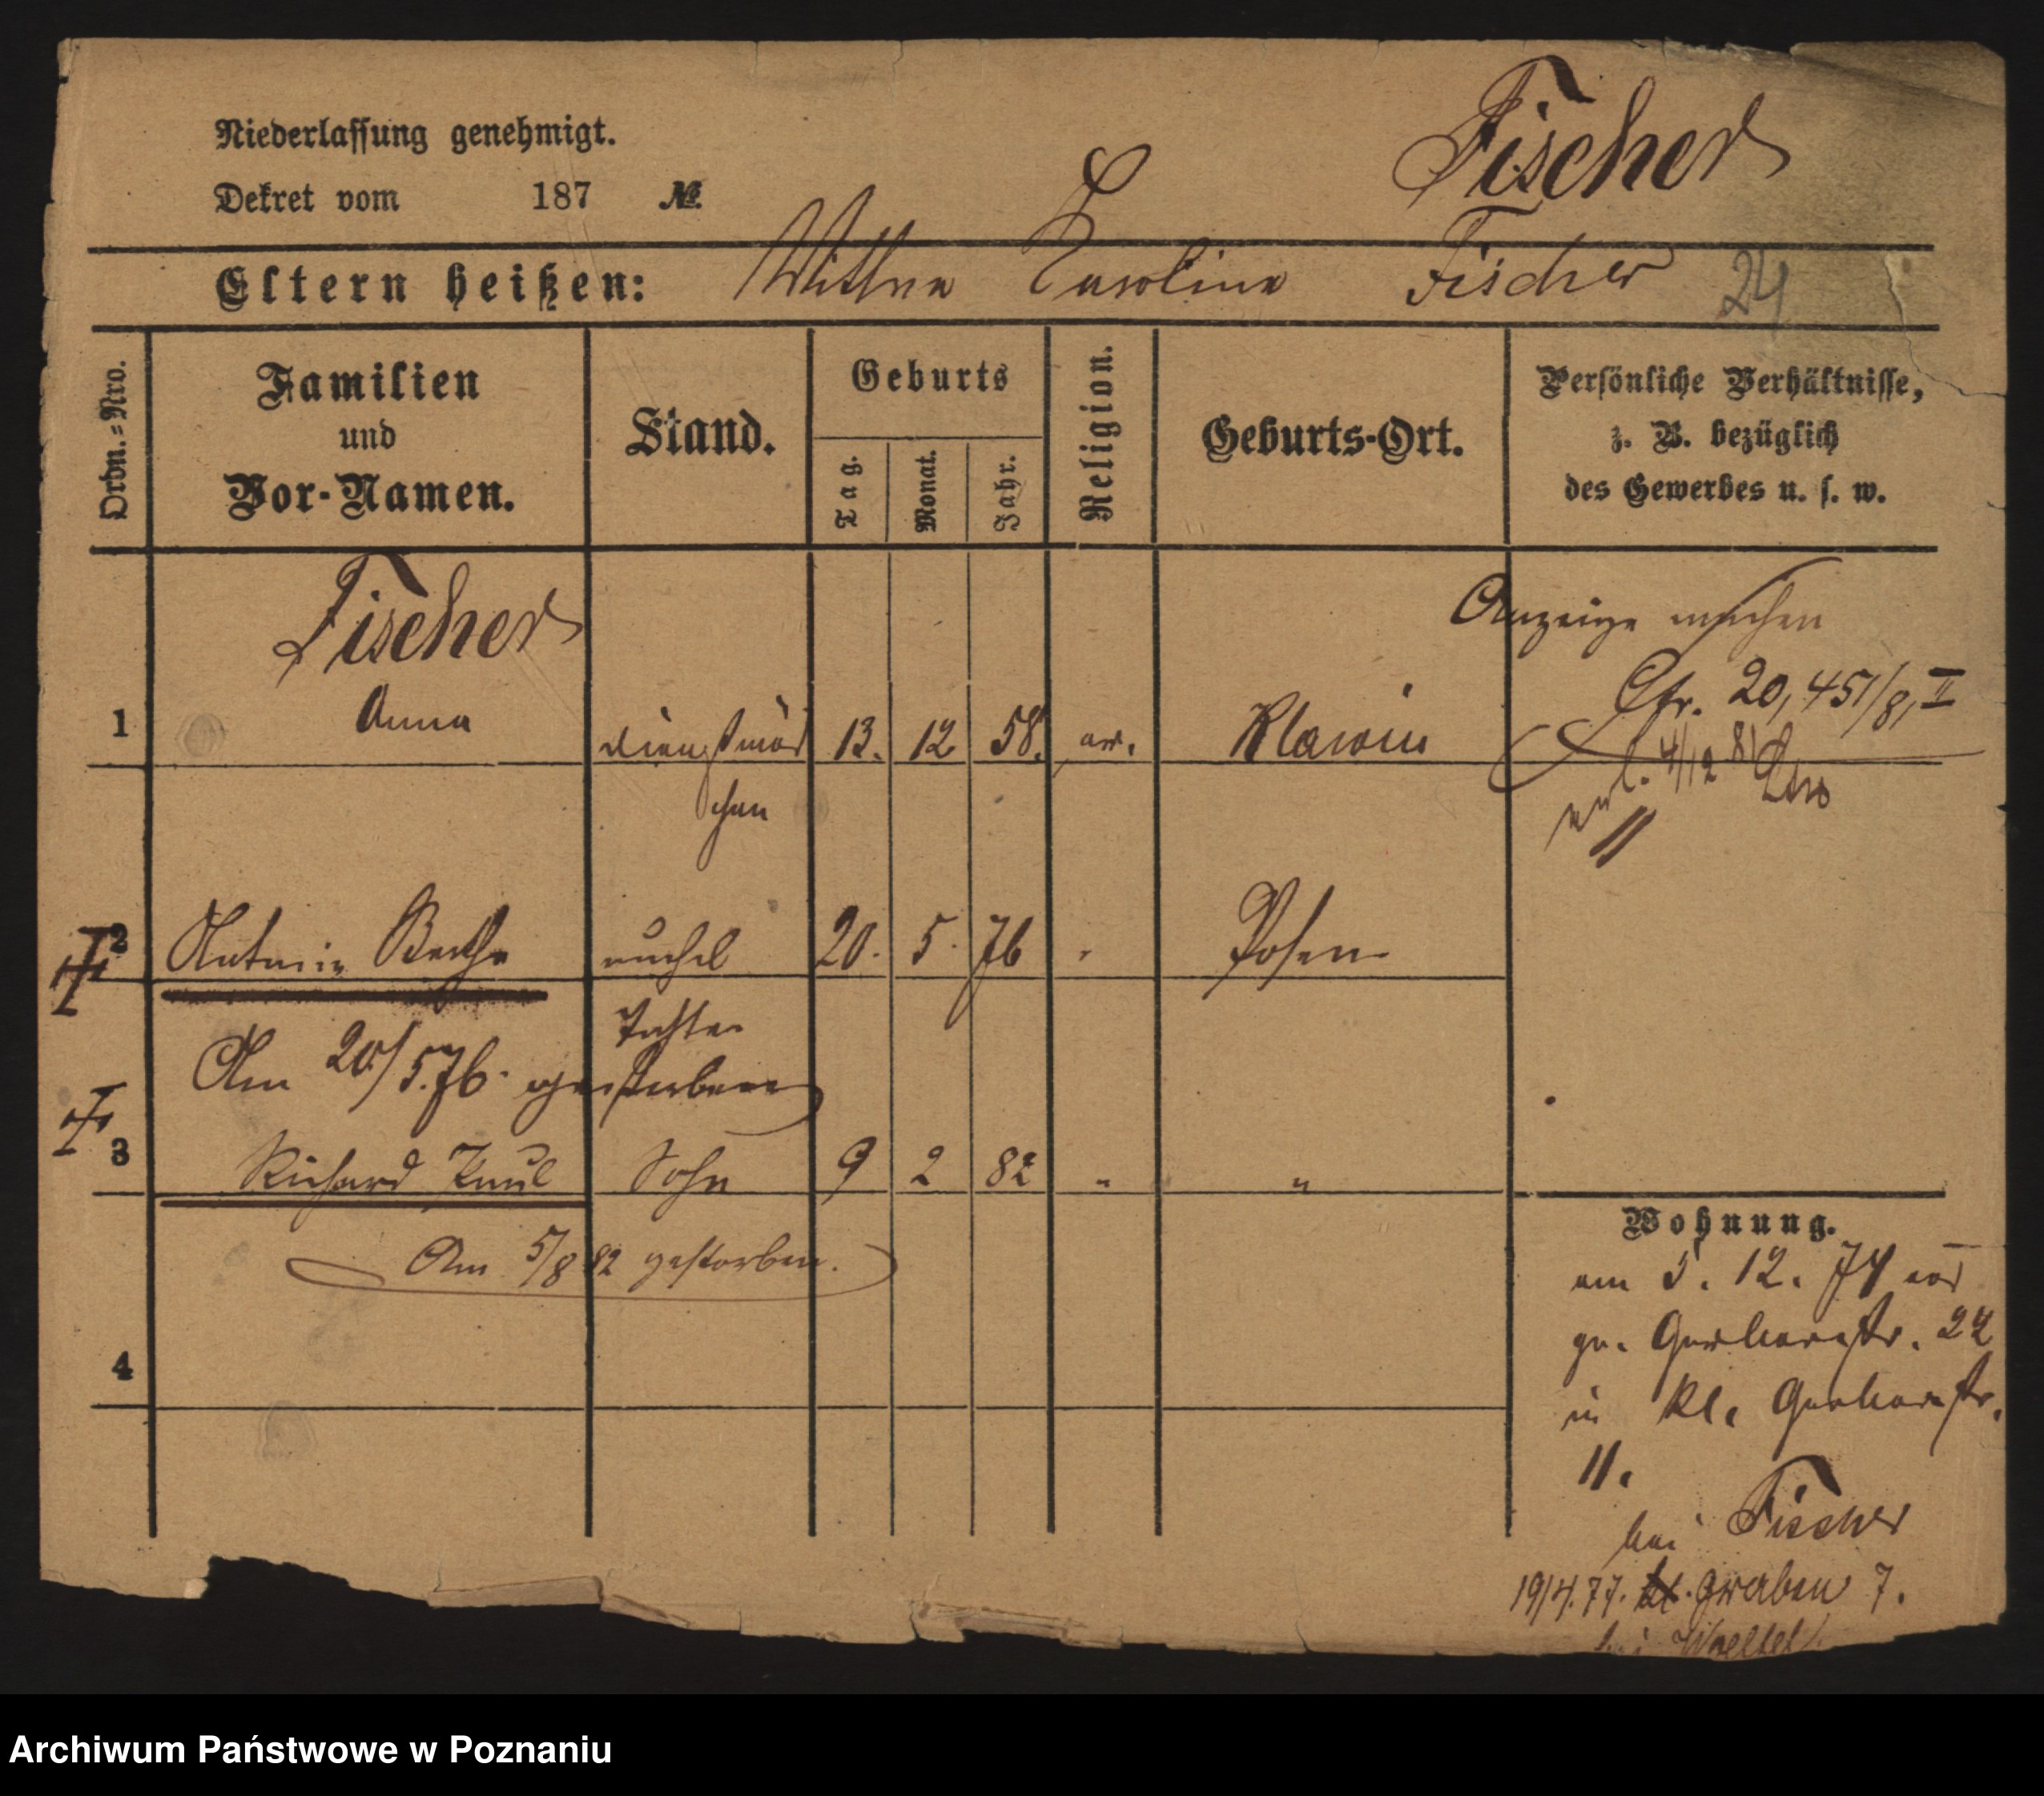 Fischer
Niederlassung genehmigt.
Dekret vom 187 №
Eltern heißen: Wittwe Caroline Fischer 24
Ordn.=Nro.
Familien
und
Vor-Namen.
Stand.
Geburts
Tag.
Monat.
Jahr.
Religion.
Geburts-Ort.
Persönliche Verhältnisse,
z. B. bezüglich
des Gewerbes u. s. w.
Fischer
Anzeige machen
Cfr. 20,451/81 II
1 Anna dienstmäd 13. 12 58. ev.
4/12 81
chen
2 Bertha unehel 20. 5. 76 " Posen
Tochter
Am 20/5.76. gestorben
3 Richard Paul Sohn 9 2 82 " "
Am 5/8 82 gestorben.
4
Wohnung.
am 5. 12. 74 von
gr. Gerberstr. 22
in Kl. Gerberstr.
11.
bei Fischer
19/4.77. Graben 7.
bei